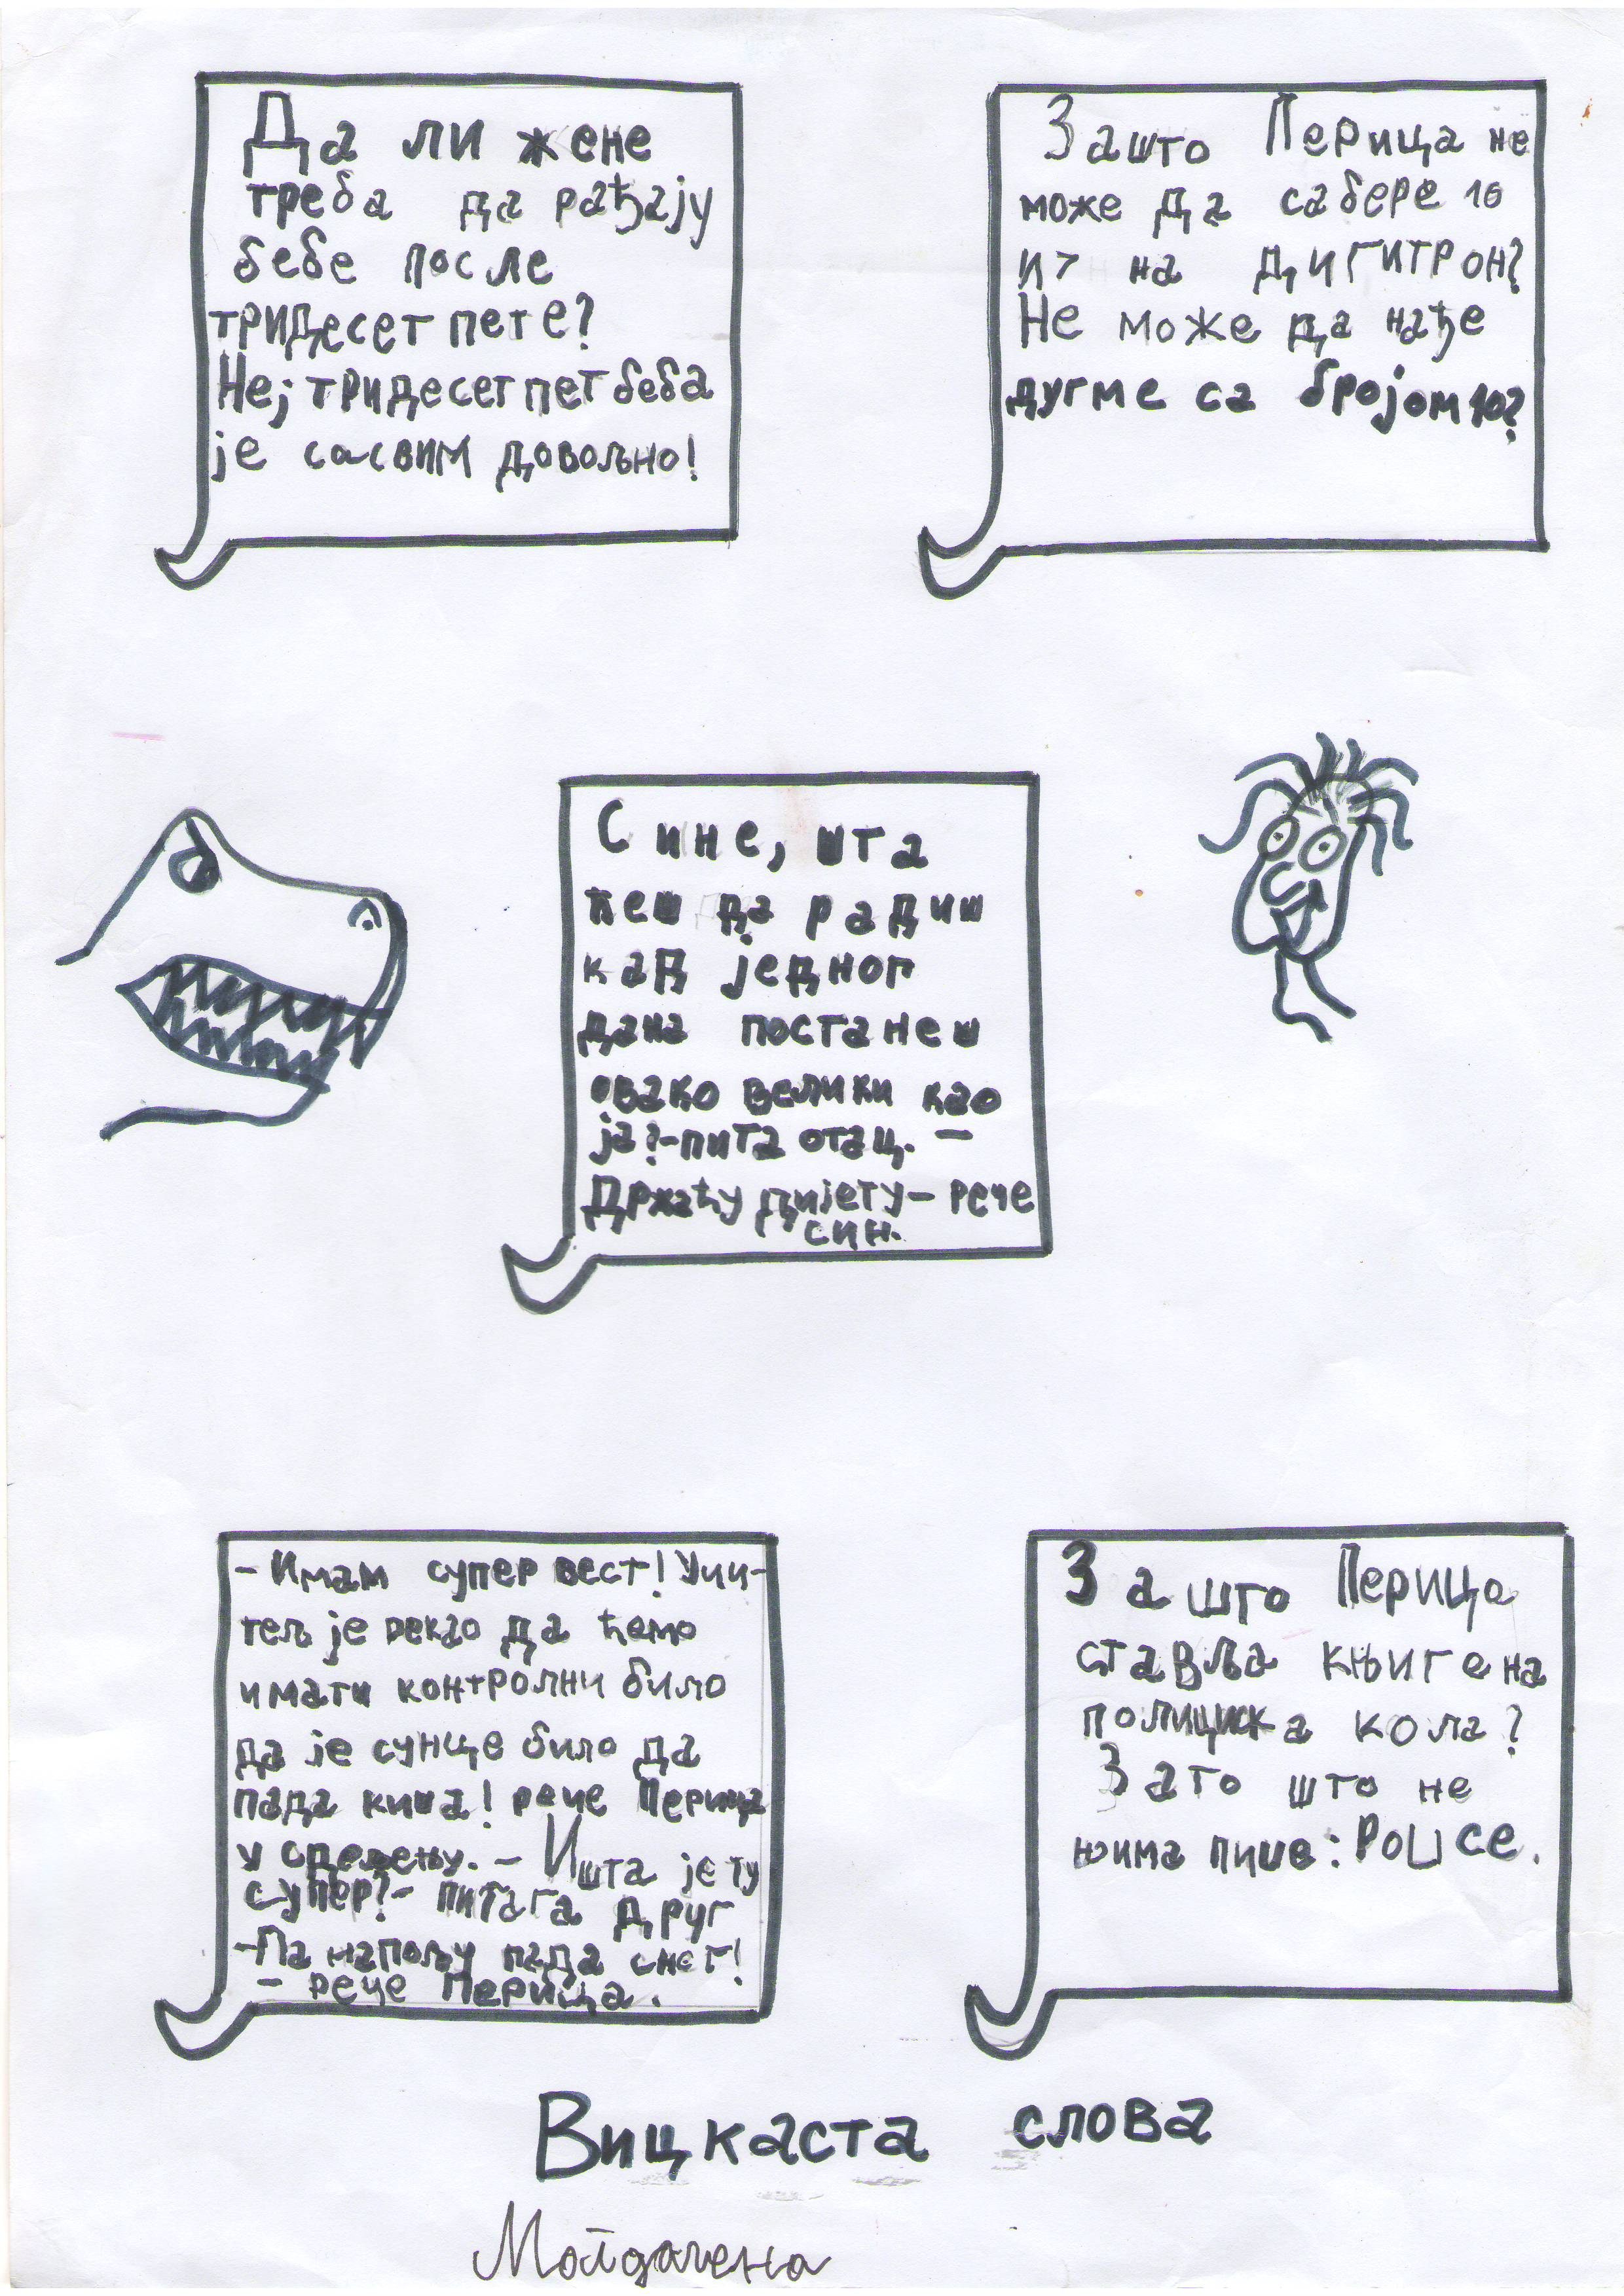 Да ли жене
треба да рађају
бебе после
тридесет пете?
Не; тридесет пет беба
је сасвим довољно!
Зашто Перица не
може да сабере 10
и 7 на дигитрон?
Не може да нађе
дугме са бројом 10?
Сине, шта
ћеш да радиш
кад једног
дана постанеш
овако велики као
ја?-пита отац. -
Држаћу дијету- рече
син.
- Имам супер вест! Учи-
тељ је рекао да ћемо
имати контролни било
да је сунце било да
пада киша! рече Перица
у одељењу. - И шта је ту
супер?- пита га друг
-Па напољу пада снег!
- рече Перица.
Зашто Перица
ставља књиге на
полициска кола?
Зато што не
њима пише: POLICE.
Вицкаста слова